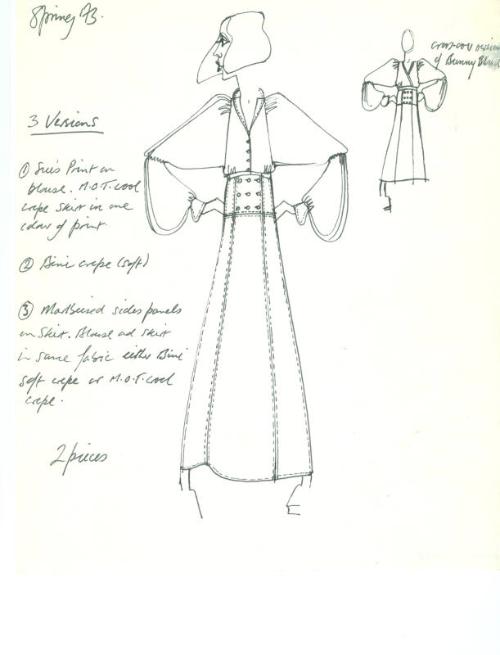 Spring 73.
3 Versions
① Sue's Print on
blouse. M.O.T. cool
crepe skirt in one
colour of print
② Bini crepe (soft)
③ sides panels
on Skirt. Blouse and skirt
in same fabric either Bini
soft crepe or M.O.T. cool
crepe.
2 pieces
cross-over version
of Bunny